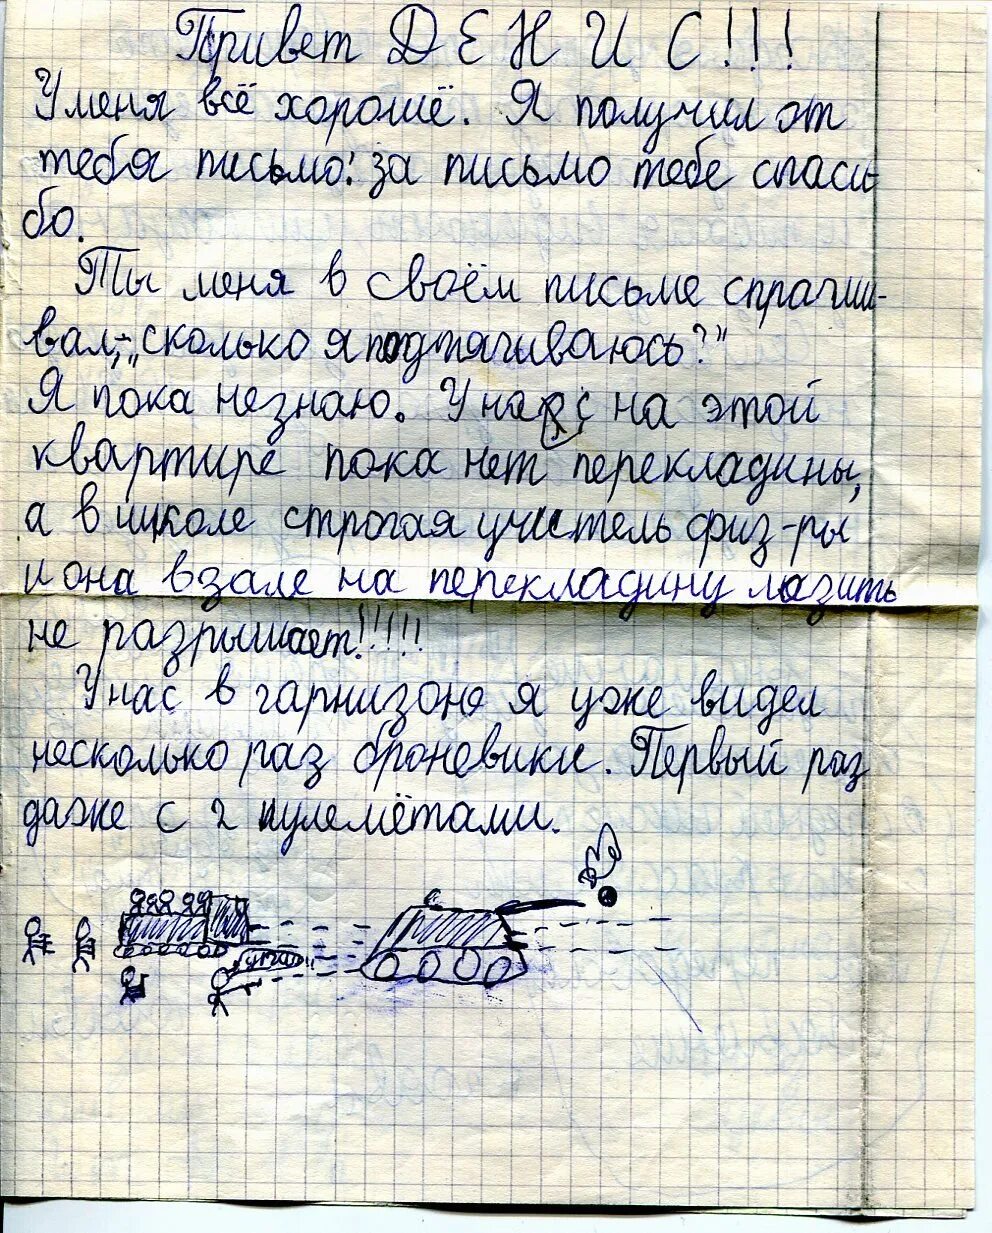 Привет Д Е Н И С!!!
У меня всё хорошё. Я получил от
тебя письмо: за письмо тебе спаси-
бо.
Ты меня в своём письме спраши-
вал, - „сколько я подтягиваюсь?"
Я пока незнаю. У нас на этой
квартире пока нет перекладины,
а в школе строгая учитель физ-ры
и она в зале на перекладину лазить
не разрышает!!!!!
У нас в гарнизоне я уже видел
несколько раз броневики. Первый раз
даже с 2 пулемётами.